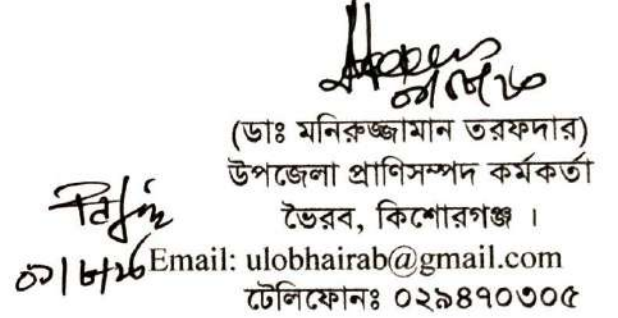 (ডাঃ মনিরুজ্জামান তরফদার)
উপজেলা প্রাণিসম্পদ কর্মকর্তা
ভৈরব, কিশোরগঞ্জ ।
Email: ulobhairab@gmail.com
টেলিফোনঃ ০২৯৪৭০৩০৫